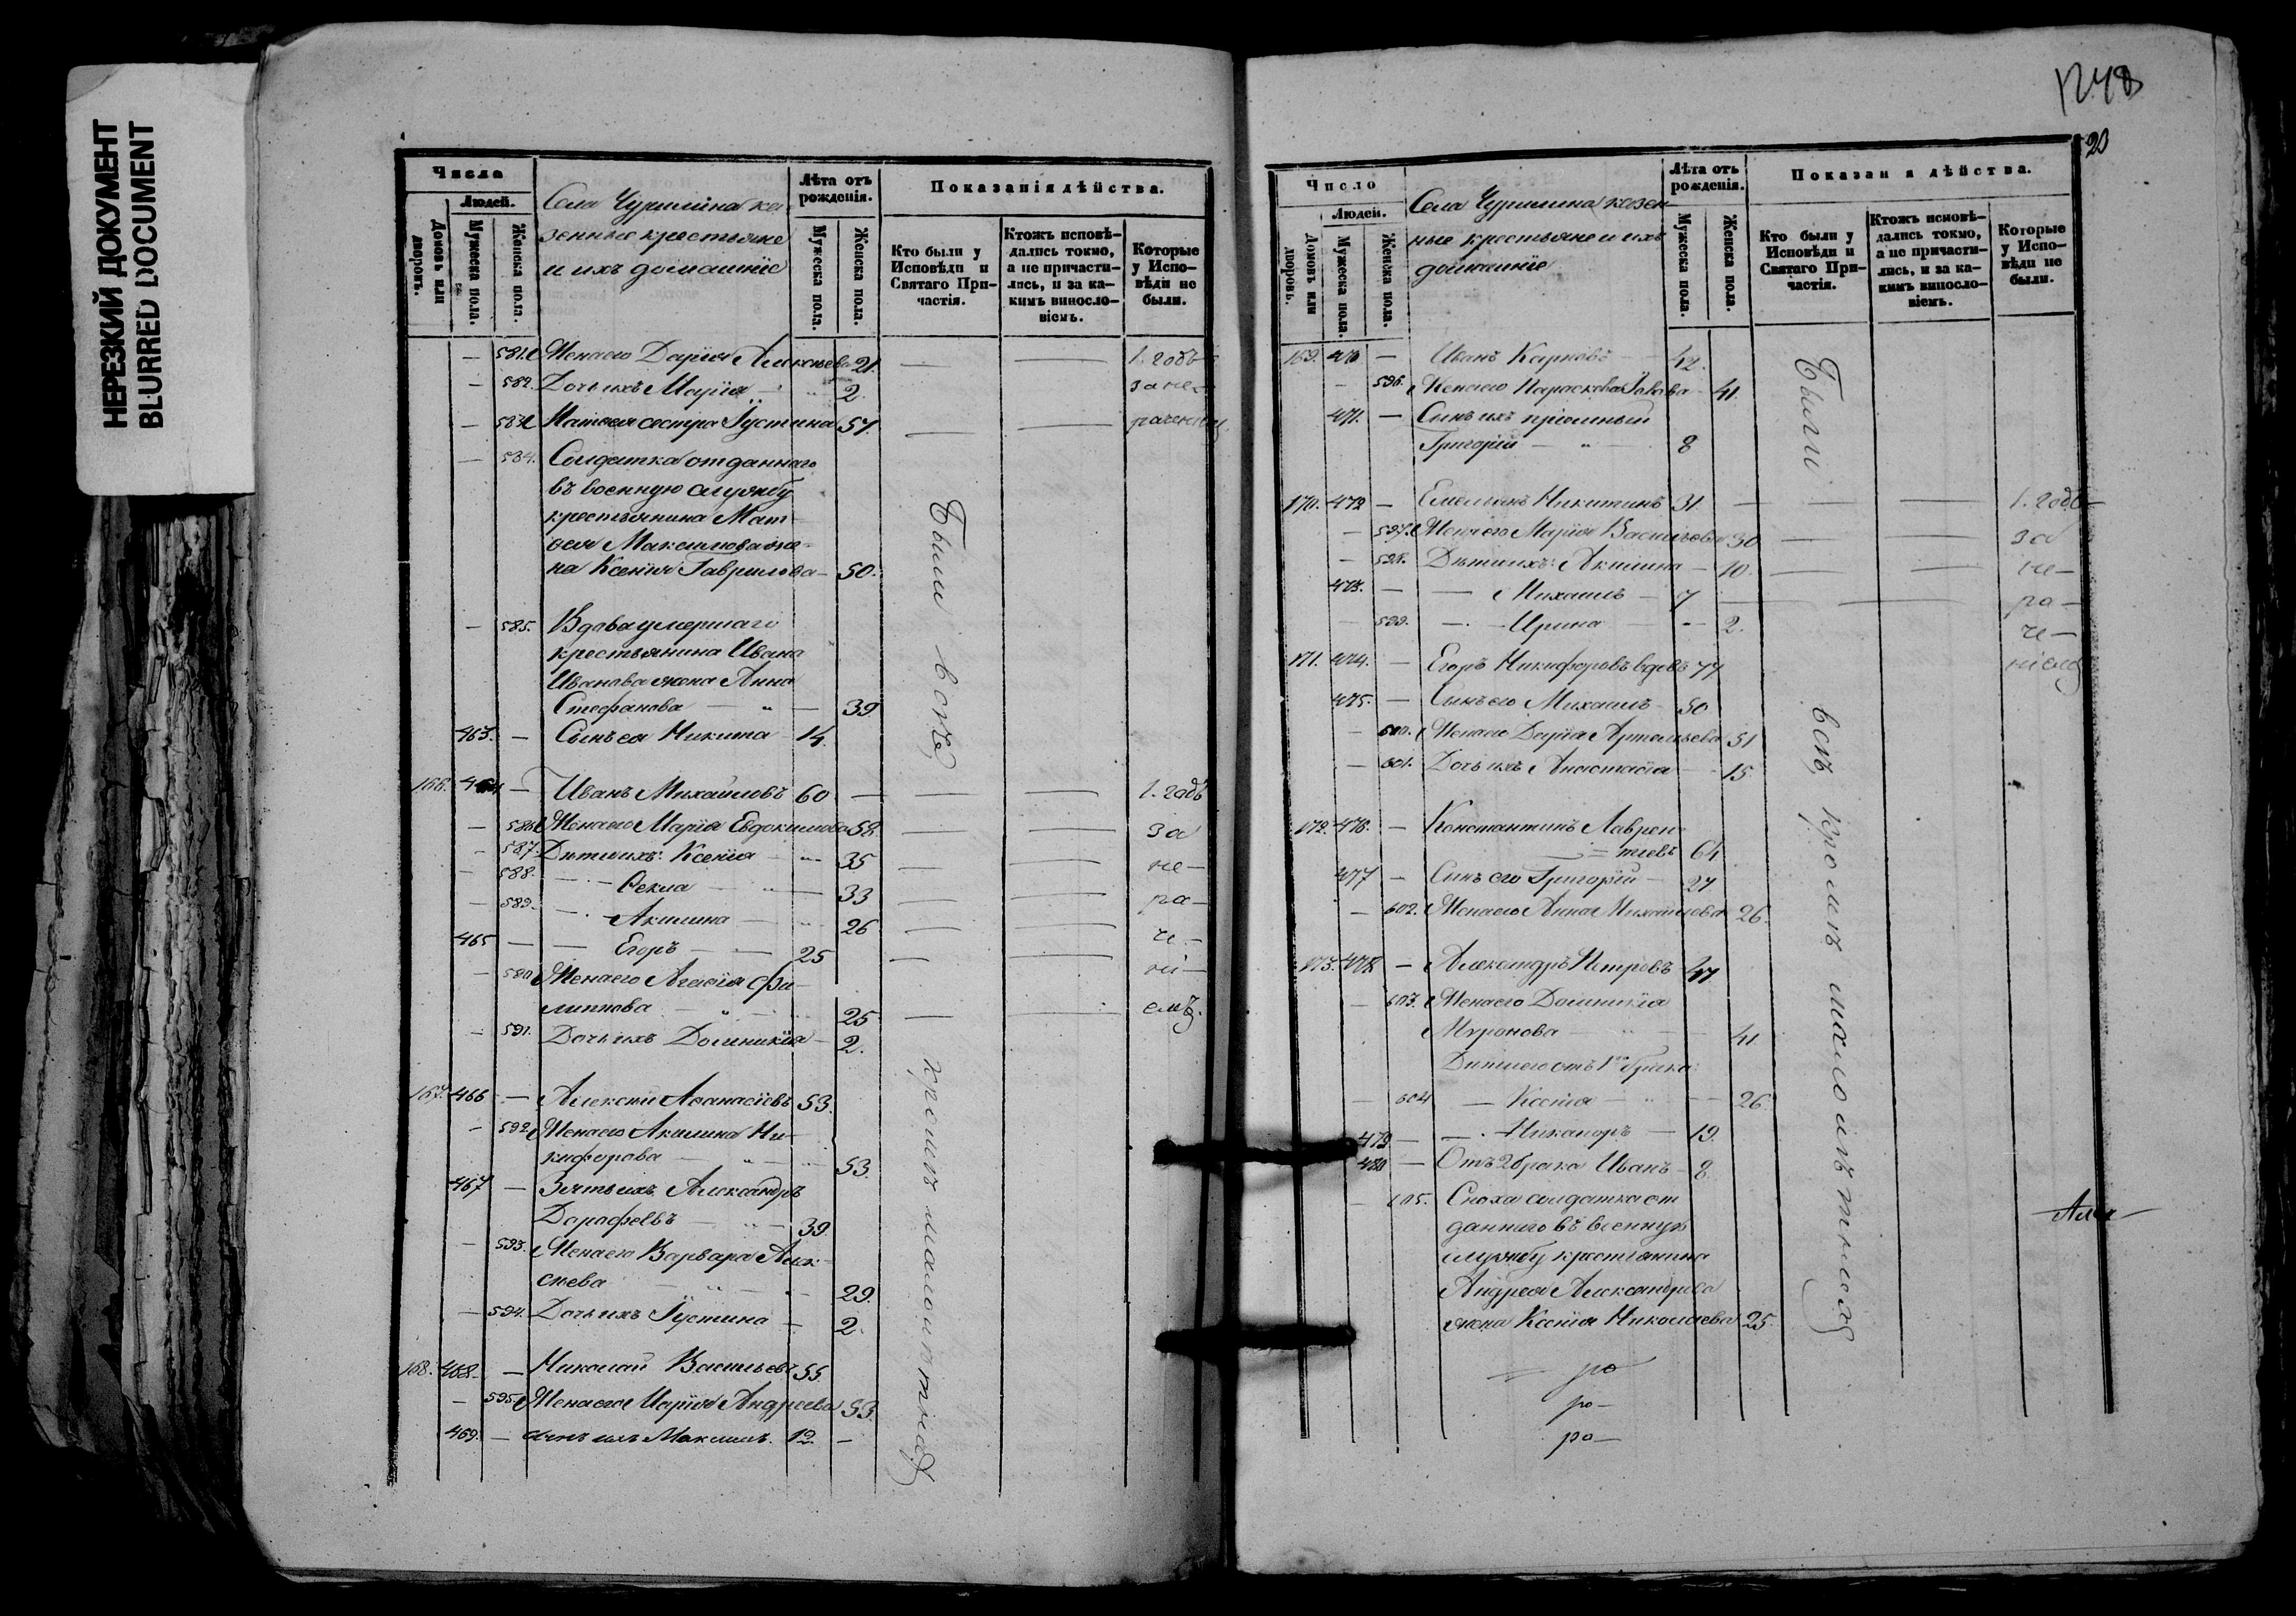 НЕРЕЗКИЙ ДОКУМЕНТ
BLURRED DOCUMENT
Число
Людей.
Домовъ или дворовъ.
Мужеска пола.
Женска пола.
Села Чурилина ка-
зенные крестьяне
и ихъ домашніе
Лѣта отъ рожденія.
Мужеска пола.
Женска пола.
Показанія дѣйства.
Кто были у Исповѣди и Святаго Причастія.
Ктожъ исповѣ-дались токмо, а не причасти-лись, и за ка-кимъ винословіемъ.
Которые у Испо-вѣди не были.
— 581. Жена его Дарья Алексѣева 21. — — 1. годъ
— 582. Дочь ихъ Марія 2. за не-
— 583. Матвея сестра Іустина 57. — — раченіемъ
— 584. Солдатка отданнаго
въ военную службу
крестьянина Мат-
вея Максимова же-
на Ксенія Гаврилова — 50.
— 585. Вдова умершаго
крестьянина Ивана
Иванова жена Анна
Стефанова — 39
463. — Сынъ ея Никита 14.
464. — Иванъ Михайловъ 60 — — 1. годъ
— 586. Жена его Марія Евдокимова 58. — — за
— 587. Дѣти ихъ: Ксенія 35 — — не-
— 588. Ѳекла 33 — — ра-
— 589. Акилина 26 — — че-
465 — Егоръ 25 — — ні-
— 590. Жена его Агафія Фи-
липпова 25 — — емъ.
— 591. Дочь ихъ Домникія — 2.
167. 466 — Алексѣй Аѳанасіевъ 53.
— 592. Жена его Акилина Ни-
кифорова 53.
467 — Зять ихъ Александръ
Дорофеевъ 39.
— 593. Жена его Варвара Алек-
сѣева 29.
— 594. Дочь ихъ Іустина 2.
168. 468. — Николай Васильевъ 55
— 595. Жена его Марія Андреева 53.
469. — Сынъ ихъ Максимъ. 12. —
Были вси, кромѣ малолѣтнихъ
1248
20
Число
Людей.
Домовъ или дворовъ.
Мужеска пола.
Женска пола.
Села Чурилина казен-
ные крестьяне и ихъ
домашніе
Лѣта отъ рожденія.
Мужеска пола.
Женска пола.
Показан я дѣйства.
Кто были у Исповѣди и Святаго Причастія.
Ктожъ исповѣ-дались токмо, а не причасти-лись, и за ка-кимъ винословіемъ.
Которые у Испо-вѣди не были.
169. 470 — Иванъ Карповъ 42.
— 596. Жена его Параскева 41.
471. — Сынъ ихъ пріемный
Григорій 8
170. 472 — Емельянъ Никитинъ 31. — — 1. годъ
— 597. Жена его Марія Васильева 30 — — за
— 598. Дѣти ихъ: Акилина — 10. — — не-
473. — Михаилъ — 7 — — ра-
— 599. Ирина 2. че-
171. 474. — Егоръ Никифоровъ вдовъ 77 ніемъ
475. — Сынъ его Михаилъ 50
— 600. Жена его Дарья Артемьева 51
— 601. Дочь ихъ Анастасія 15
172. 476. — Константинъ Лаврен-
тіевъ 64
477 — Сынъ его Григорій 27
— 602. Жена его Анна Михайлова 26.
173. 478 — Александръ Петровъ 47.
— 603. Жена его Домникія
Миронова 41
Дѣти его отъ 1го брака:
— 604 — Ксенія 26.
479 — Никаноръ 19.
480 — Отъ 2 брака Иванъ 8.
605. Сноха солдатка от
даннаго въ военную
службу крестьянина
Андрея Александрова
жена Ксенія Николаева 25.
Были вси, кромѣ малолѣтнихъ